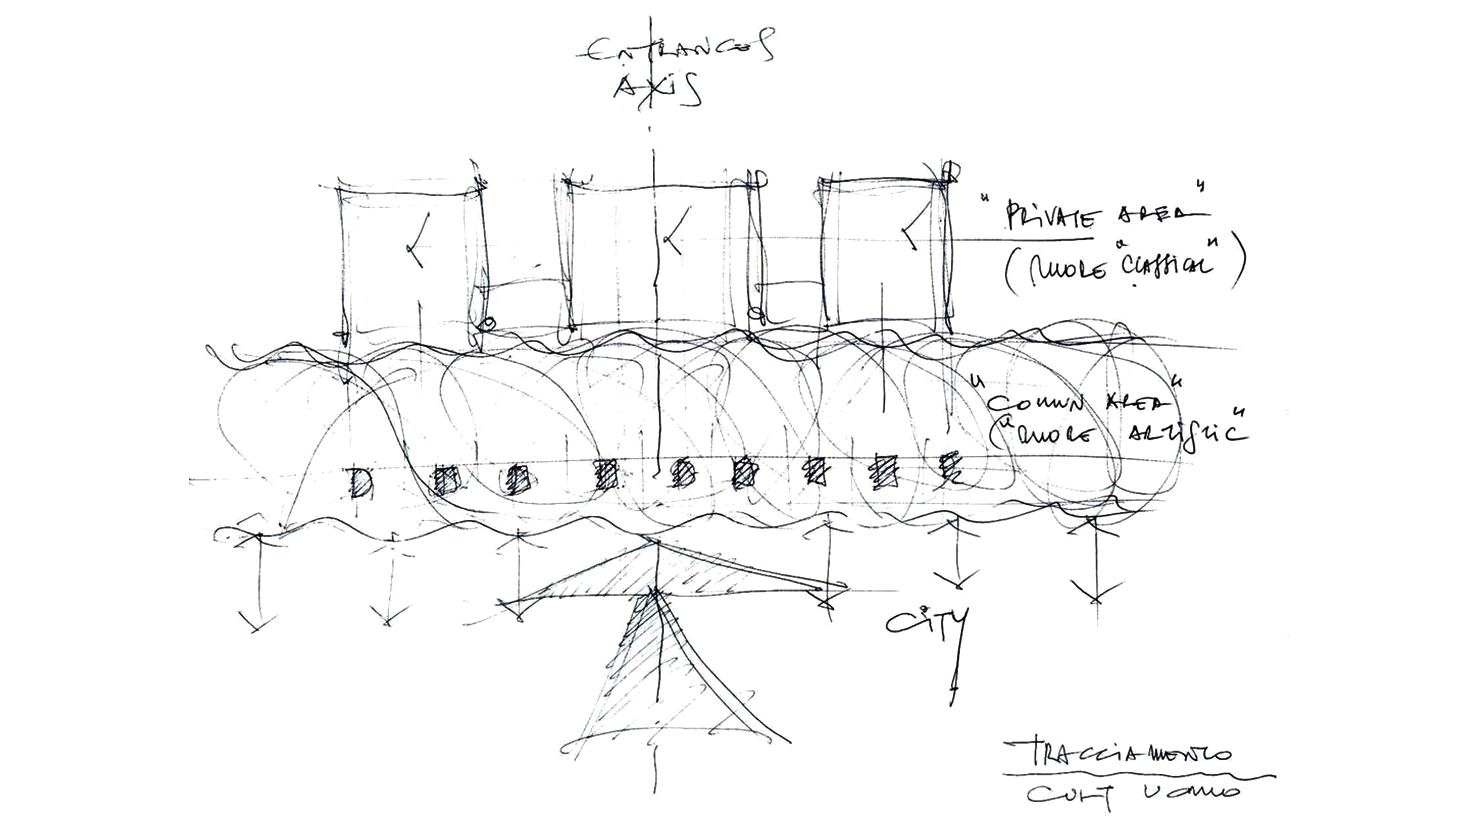 ENTRANCES
AXIS
"PRIVATE AREA"
(MORE "CLASSICAL")
"COMUN AREA"
("MORE ARTISTIC"
CITY
TRACCIAMENTO
UOMO